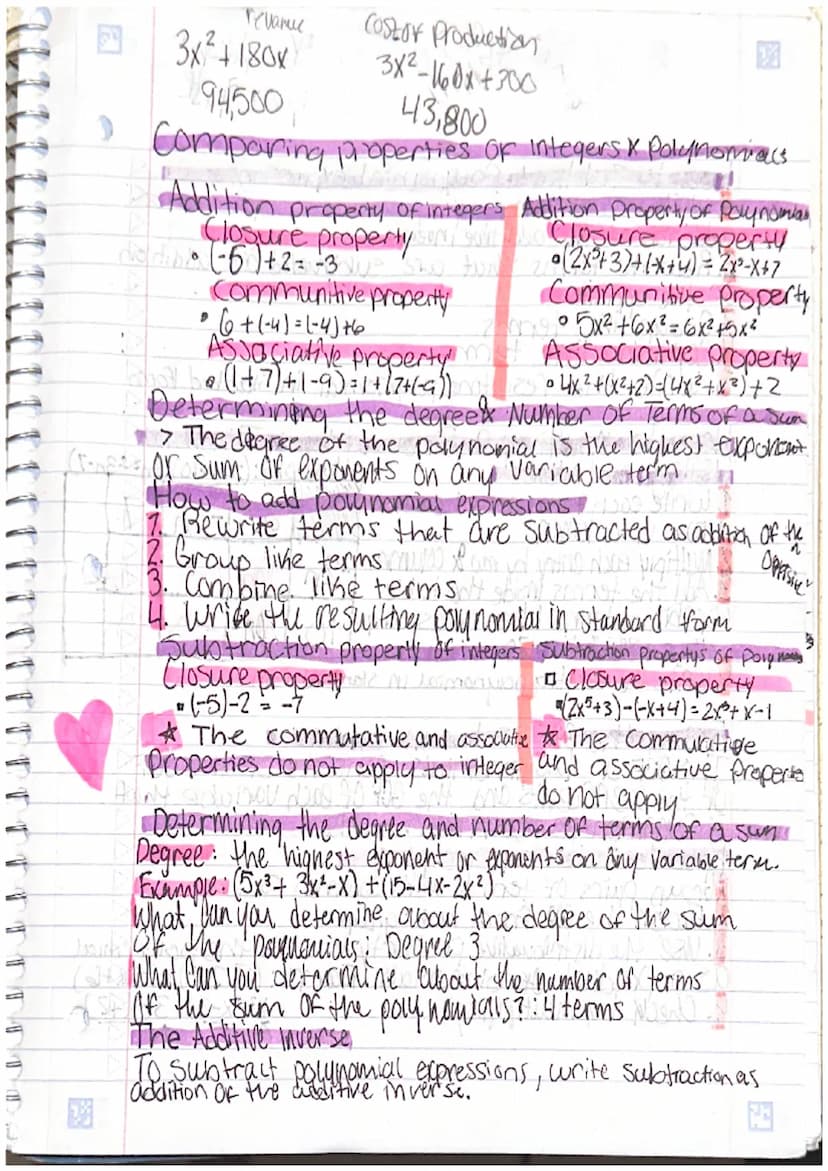 revanue cost of production
3x²+180x 3x²-160x+300
94,500 43,800
Comparing properties of integers & Polynomials
Addition property of integers Addition Property of Polynomias
Closure property Closure property
• (-5)+2=-3 • (2x⁵+3)+(-x+4) = 2x⁵-x+7
Communitive property Communitive Property
• 6+(-4)=(-4)+6 • 5x²+6x²=6x²+5x²
Associative property Associative property
• (1+7)+(-9)=1+(7+(-9)) • 4x²+(x²+2)=(4x²+x²)+2
Determining the degree & Number of Terms of a sum
> The degree of the polynomial is the highest exponent
or sum of exponents on any variable term
How to add polynomial expressions
1. Rewrite terms that are subtracted as addition of the
opposite
2. Group like terms
3. Combine like terms
4. Write the resulting polynomial in standard form
Subtraction property of integers Subtraction propertys of
Closure property Closure property
• (-5)-2 = -7 (2x⁵+3)-(-x+4)=2x⁵+x-1
☆ The commutative and associative ☆ The commutative
Properties do not apply to integer and associative Properte
do not apply
Determining the degree and number of terms of a sum
Degree: the highest exponent or exponents on any variable term.
Example: (5x³+3x²-x)+(15-4x-2x²)
What can you determine about the degree of the sum
of the polynomials: Degree 3
What can you determine about the number of terms
of the sum of the polynomials?: 4 terms
The Additive inverse
To subtract polynomial expressions, write subtraction as
addition of the additive inverse.